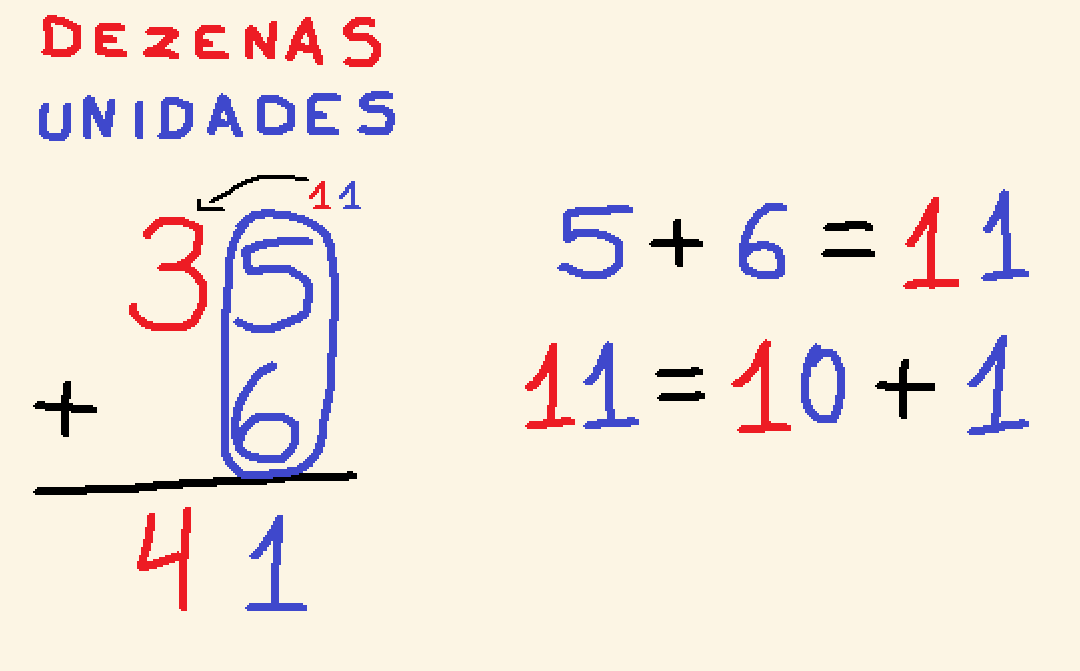 DEZENAS
UNIDADES
11
35
+ 6
41
5 + 6 = 11
11 = 10 + 1